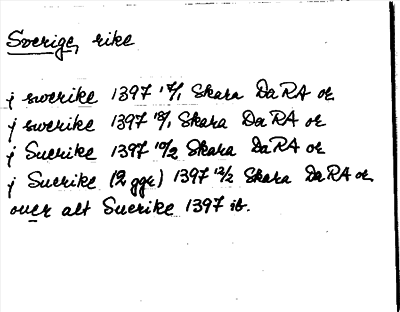 Sverige, rike
j swerike 1397 17/1 Skara DaRA or
j swerike 1397 18/1 Skara DaRA or
j Suerike 1397 10/2 Skara DaRA or
j Suerike (2 ggr) 1397 12/2 Skara DaRA or
ouer alt Suerike 1397 ib.